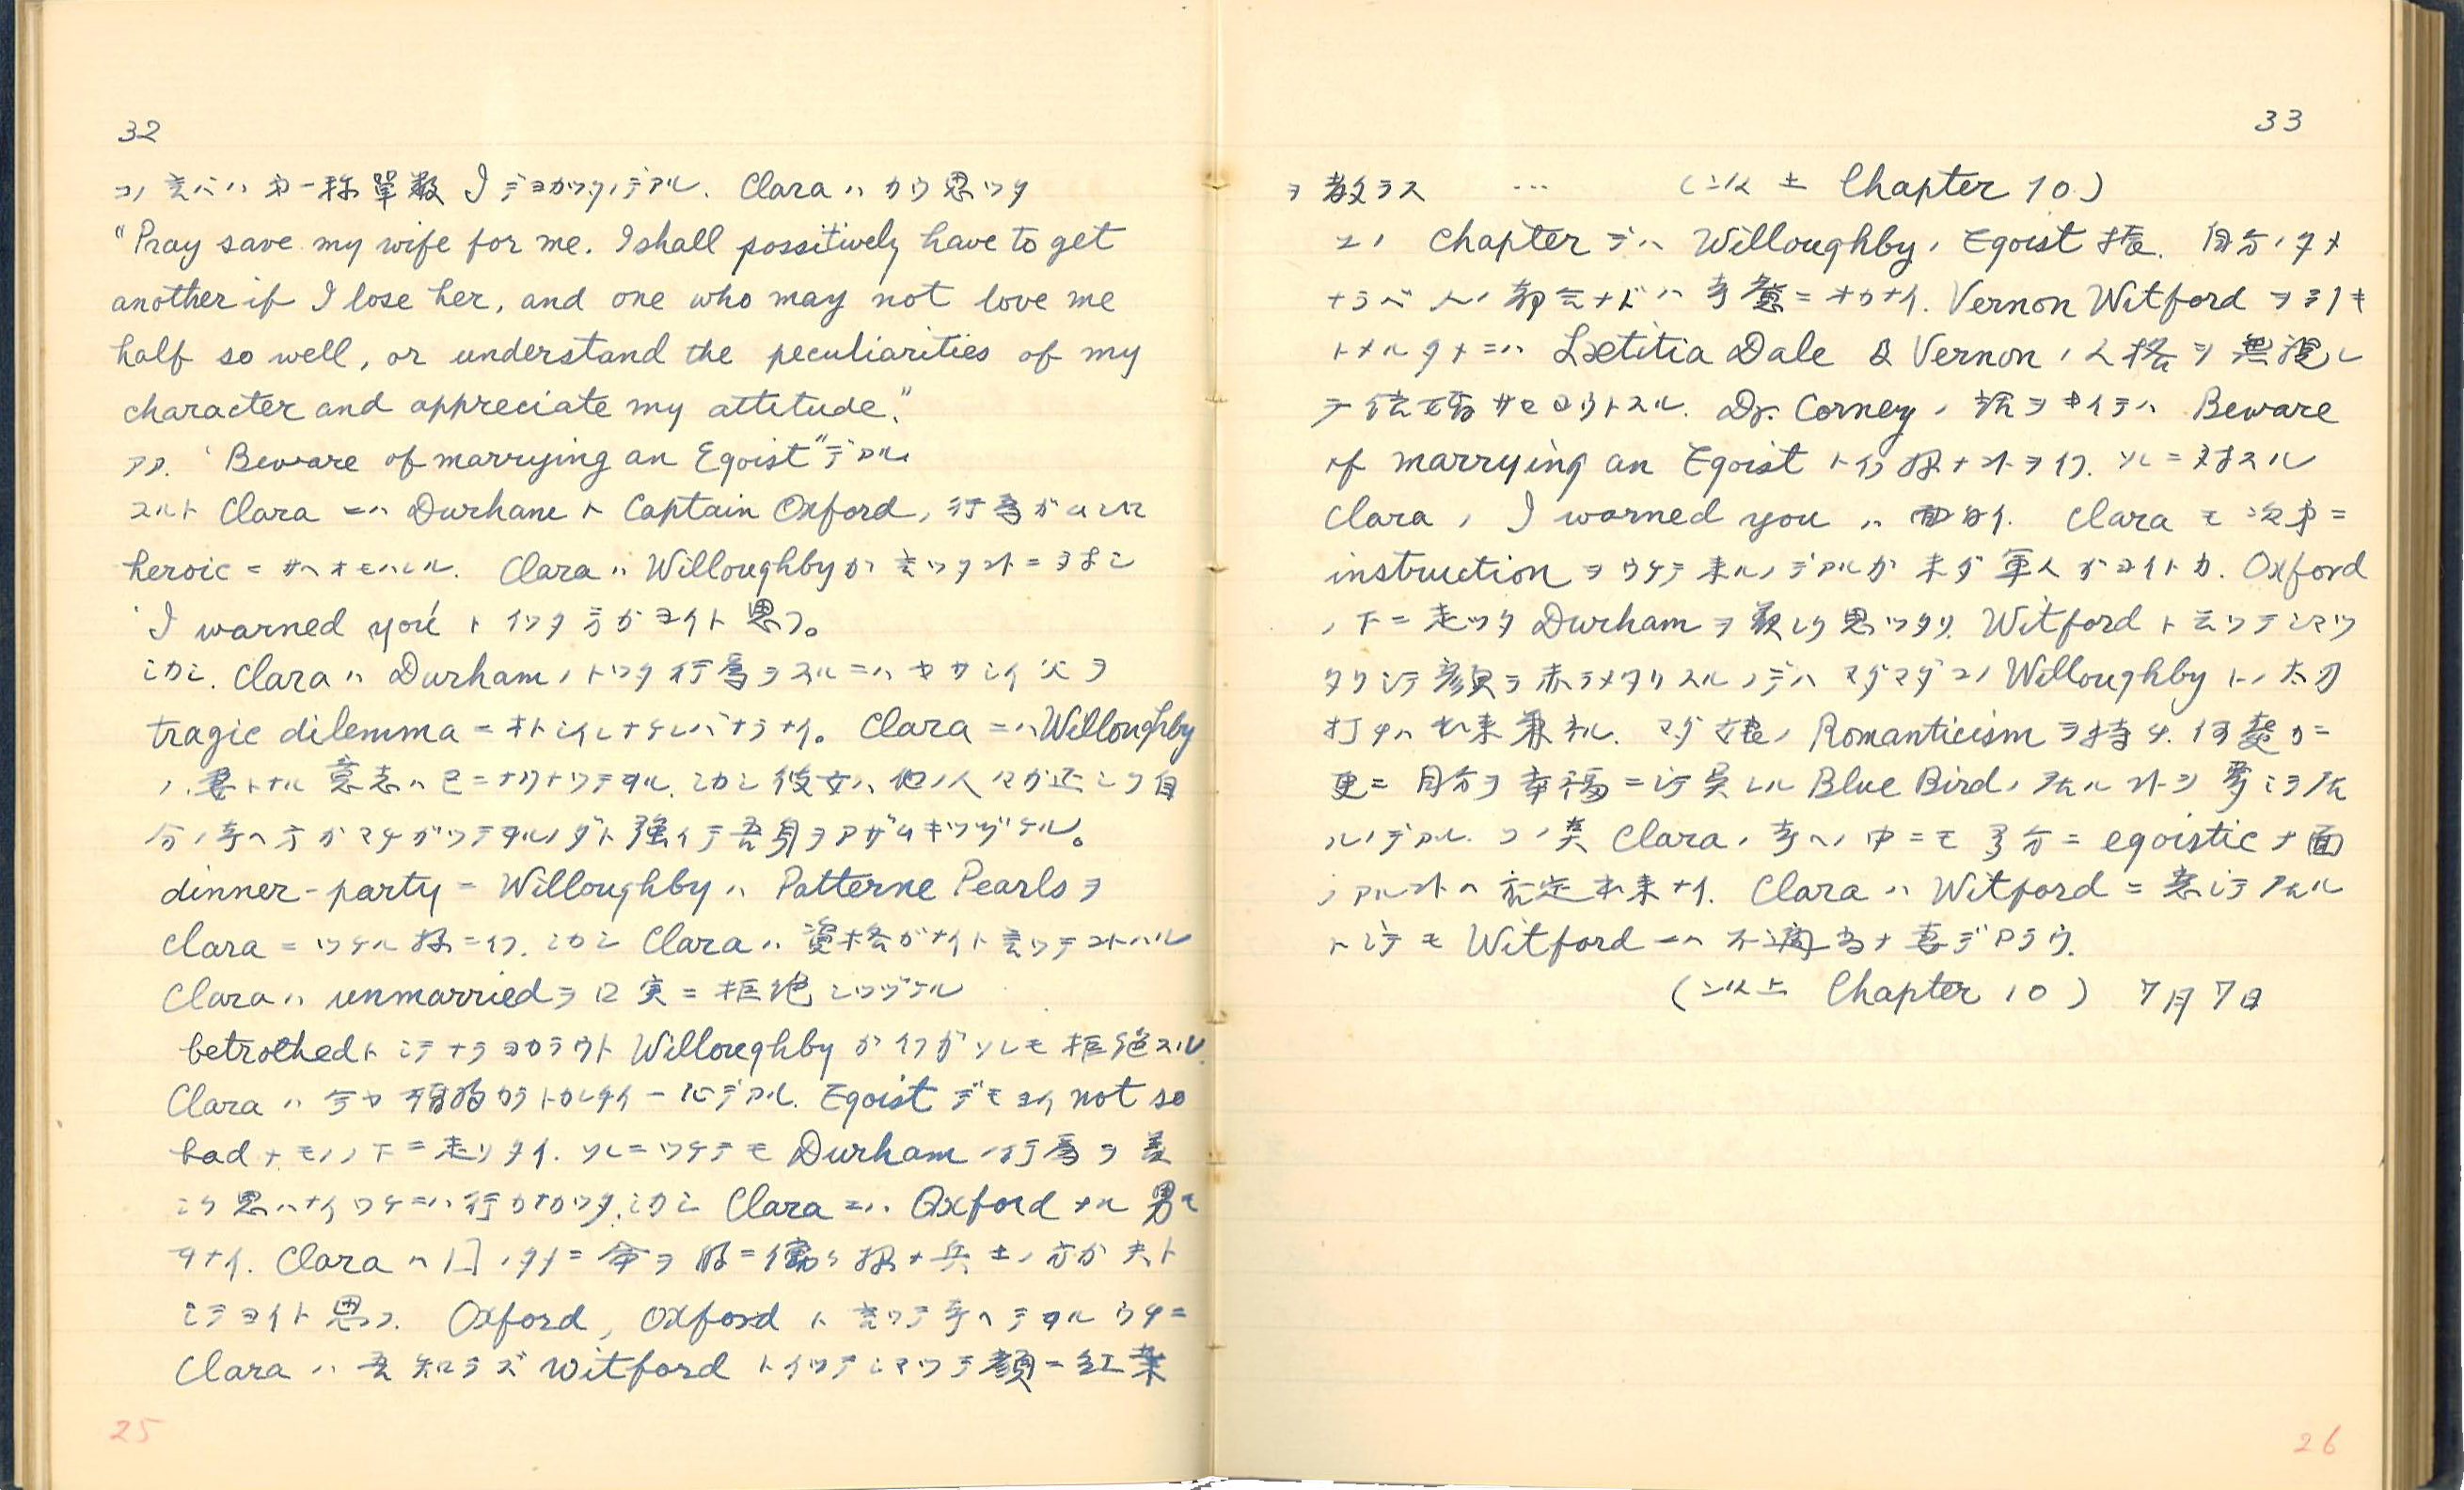 32
コノ言バハ第一称單数 I デヨカツタノデアル. Clara ハ カウ思ツタ
"Pray save my wife for me. I shall possitively have to get
another if I lose her, and one who may not love me
half so well, or understand the peculiarities of my
character and appreciate my attitude."
アア. 'Beware of marrying an Egoist" デアル.
スルト Clara ニハ Durhane ト Captain Oxford ノ 行為ガムシロ
heroic ニサヘオモハレル. Clara ハ Willoughby ガ 言ツタコトニヨヨシ
'I warned you' トイツタ方ガヨイト思フ。
シカシ. Clara ハ Durham ノトツタ行為ヲスルニハヤサシイ父ヲ
tragic dilemma ニオトシイレナケレバナラナイ。 Clara ニハ Willoughby
ノ妻トナル意志ハ已ニナクナツテヰル. シカシ彼女ハ他ノ人々ガ正シク自
分ノ考ヘ方ガマチガツテヰルノダト強イテ吾身ヲアザムキツヅケル。
dinner-party – Willoughby ハ Patterne Pearls ヲ
Clara ニツケル様ニイフ. シカシ Clara ハ資格ガナイト言ツテコトハル
Clara ハ unmarried ヲ口実ニ拒絶シツヅケル
betrothed トシテナラヨカラウト Willoughby ガイフガソレモ拒絶スル
Clara ハ今ヤ婚約カラトカレタイ一心デアル. Egoist デモヨイ not so
bad ナモノノ下ニ走リタイ. ソレニツケテモ Durham ノ行為ヲ羨
シク思ハナイワケニハ行カナカツタ. シカシ Clara ニハ Oxford ナル男モ
ヰナイ. Clara ハ 口ノタメニ命ヲ的ニ働ク様ナ兵士ノ方ガ夫ト
シテヨイト思フ. Oxford, Oxford ト言ツテ考ヘテヰルウチニ
Clara ハ吾知ラズ Witford トイツテシマツテ顔ニ紅葉
25
33
ヲ散ラス ... (以上 Chapter 10)
コノ Chapter デハ Willoughby ノ Egoist 振. 自分ノタメ
ナラバ人ノ都合ナドハ考慮ニオカナイ. Vernon Witford ヲヒキ
トメルタメニハ Lætitia Dale & Vernon ノ人格ヲ無視シ
テ結婚サセヨウトスル. Dr. Corney ノ話ヲキイテハ Beware
of marrying an Egoist トイフ様ナコトヲイフ. ソレニ対スル
Clara ノ I warned you ハ面白イ. Clara モ次第ニ
instruction ヲウケテ来ルノデアルガ未ダ軍人ガヨイトカ. Oxford
ノ下ニ走ツタ Durham ヲ羨シク思ツタリ. Witford ト云ツテシマツ
タリシテ顔ヲ赤ラメタリスルノデハマダマダコノ Willoughby トノ太刀
打チハ出来兼ネル. マダ娘ノ Romanticism ヲ持チ. 何處カニ
更ニ自分ヲ幸福ニシテ呉レル Blue Bird ノ居ルコトヲ夢ミヲ居
ルノデアル. コノ点 Clara ノ考ヘノ中ニモ多分ニ egoistic ナ面
ノアルコトハ否定出来ナイ. Clara ハ Witford ニ恋シテ居ル
トシテモ Witford ニハ不適当ナ妻デアラウ.
(以上 Chapter 10) 7月7日
26